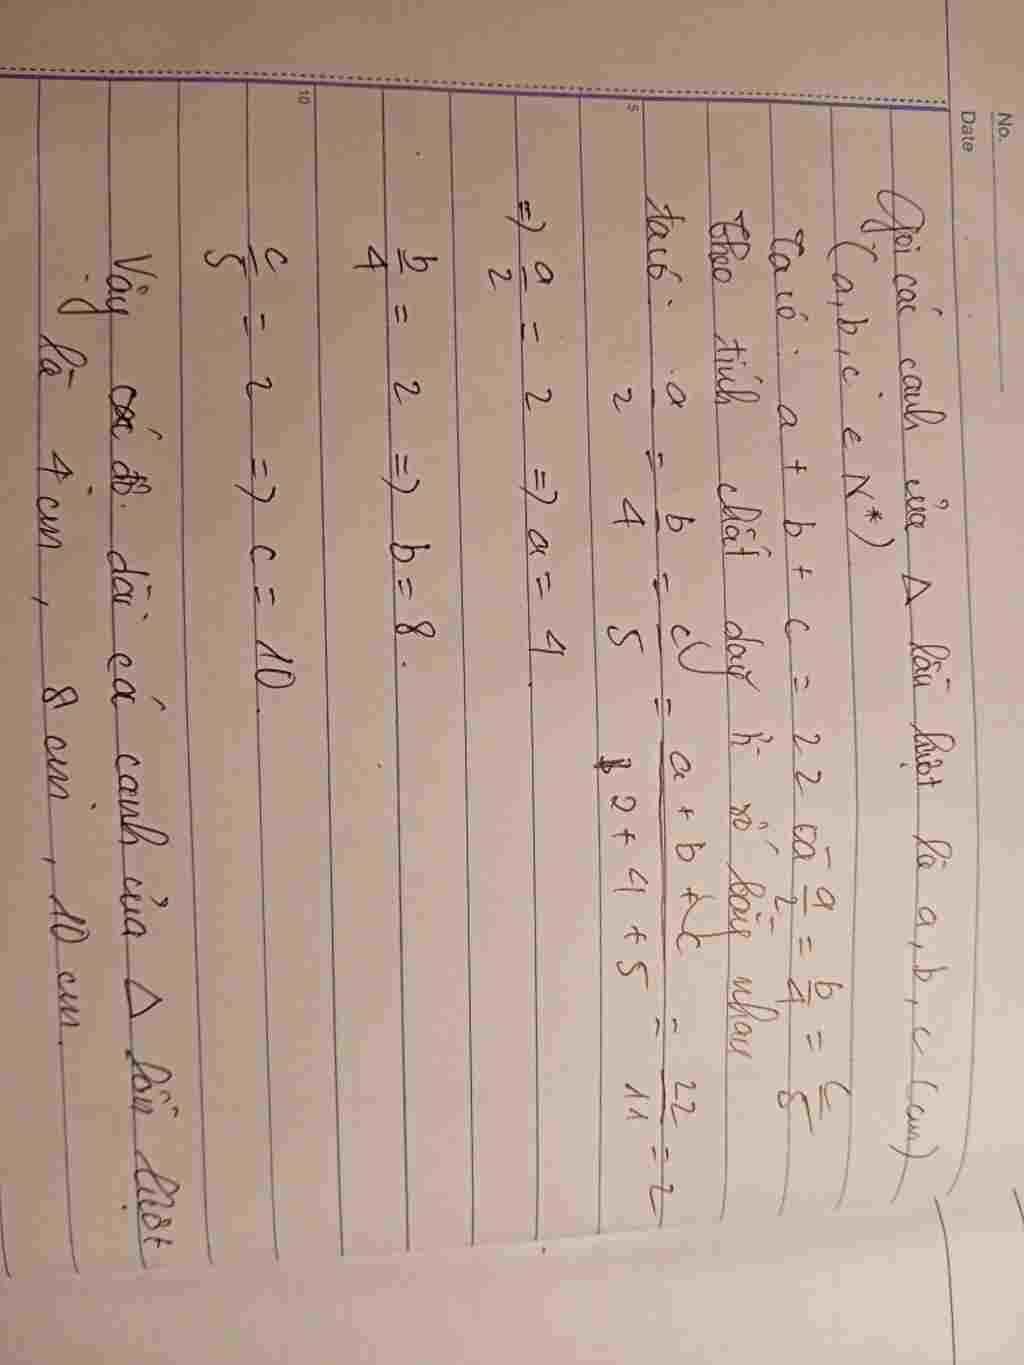 No.
Date
Gọi các cạnh của Δ lần lượt là a, b, c (cm)
(a, b, c ∈ N*)
Ta có: a + b + c = 22 và a/2 = b/4 = c/5
Theo tính chất dãy tỉ số bằng nhau
5
ta có: a/2 = b/4 = c/5 = a + b + c / 2 + 4 + 5 = 22/11 = 2
=> a/2 = 2 => a = 4.
b/4 = 2 => b = 8.
10
c/5 = 2 => c = 10.
Vậy các độ dài cá cạnh của Δ lần lượt
là 4 cm, 8 cm, 10 cm.